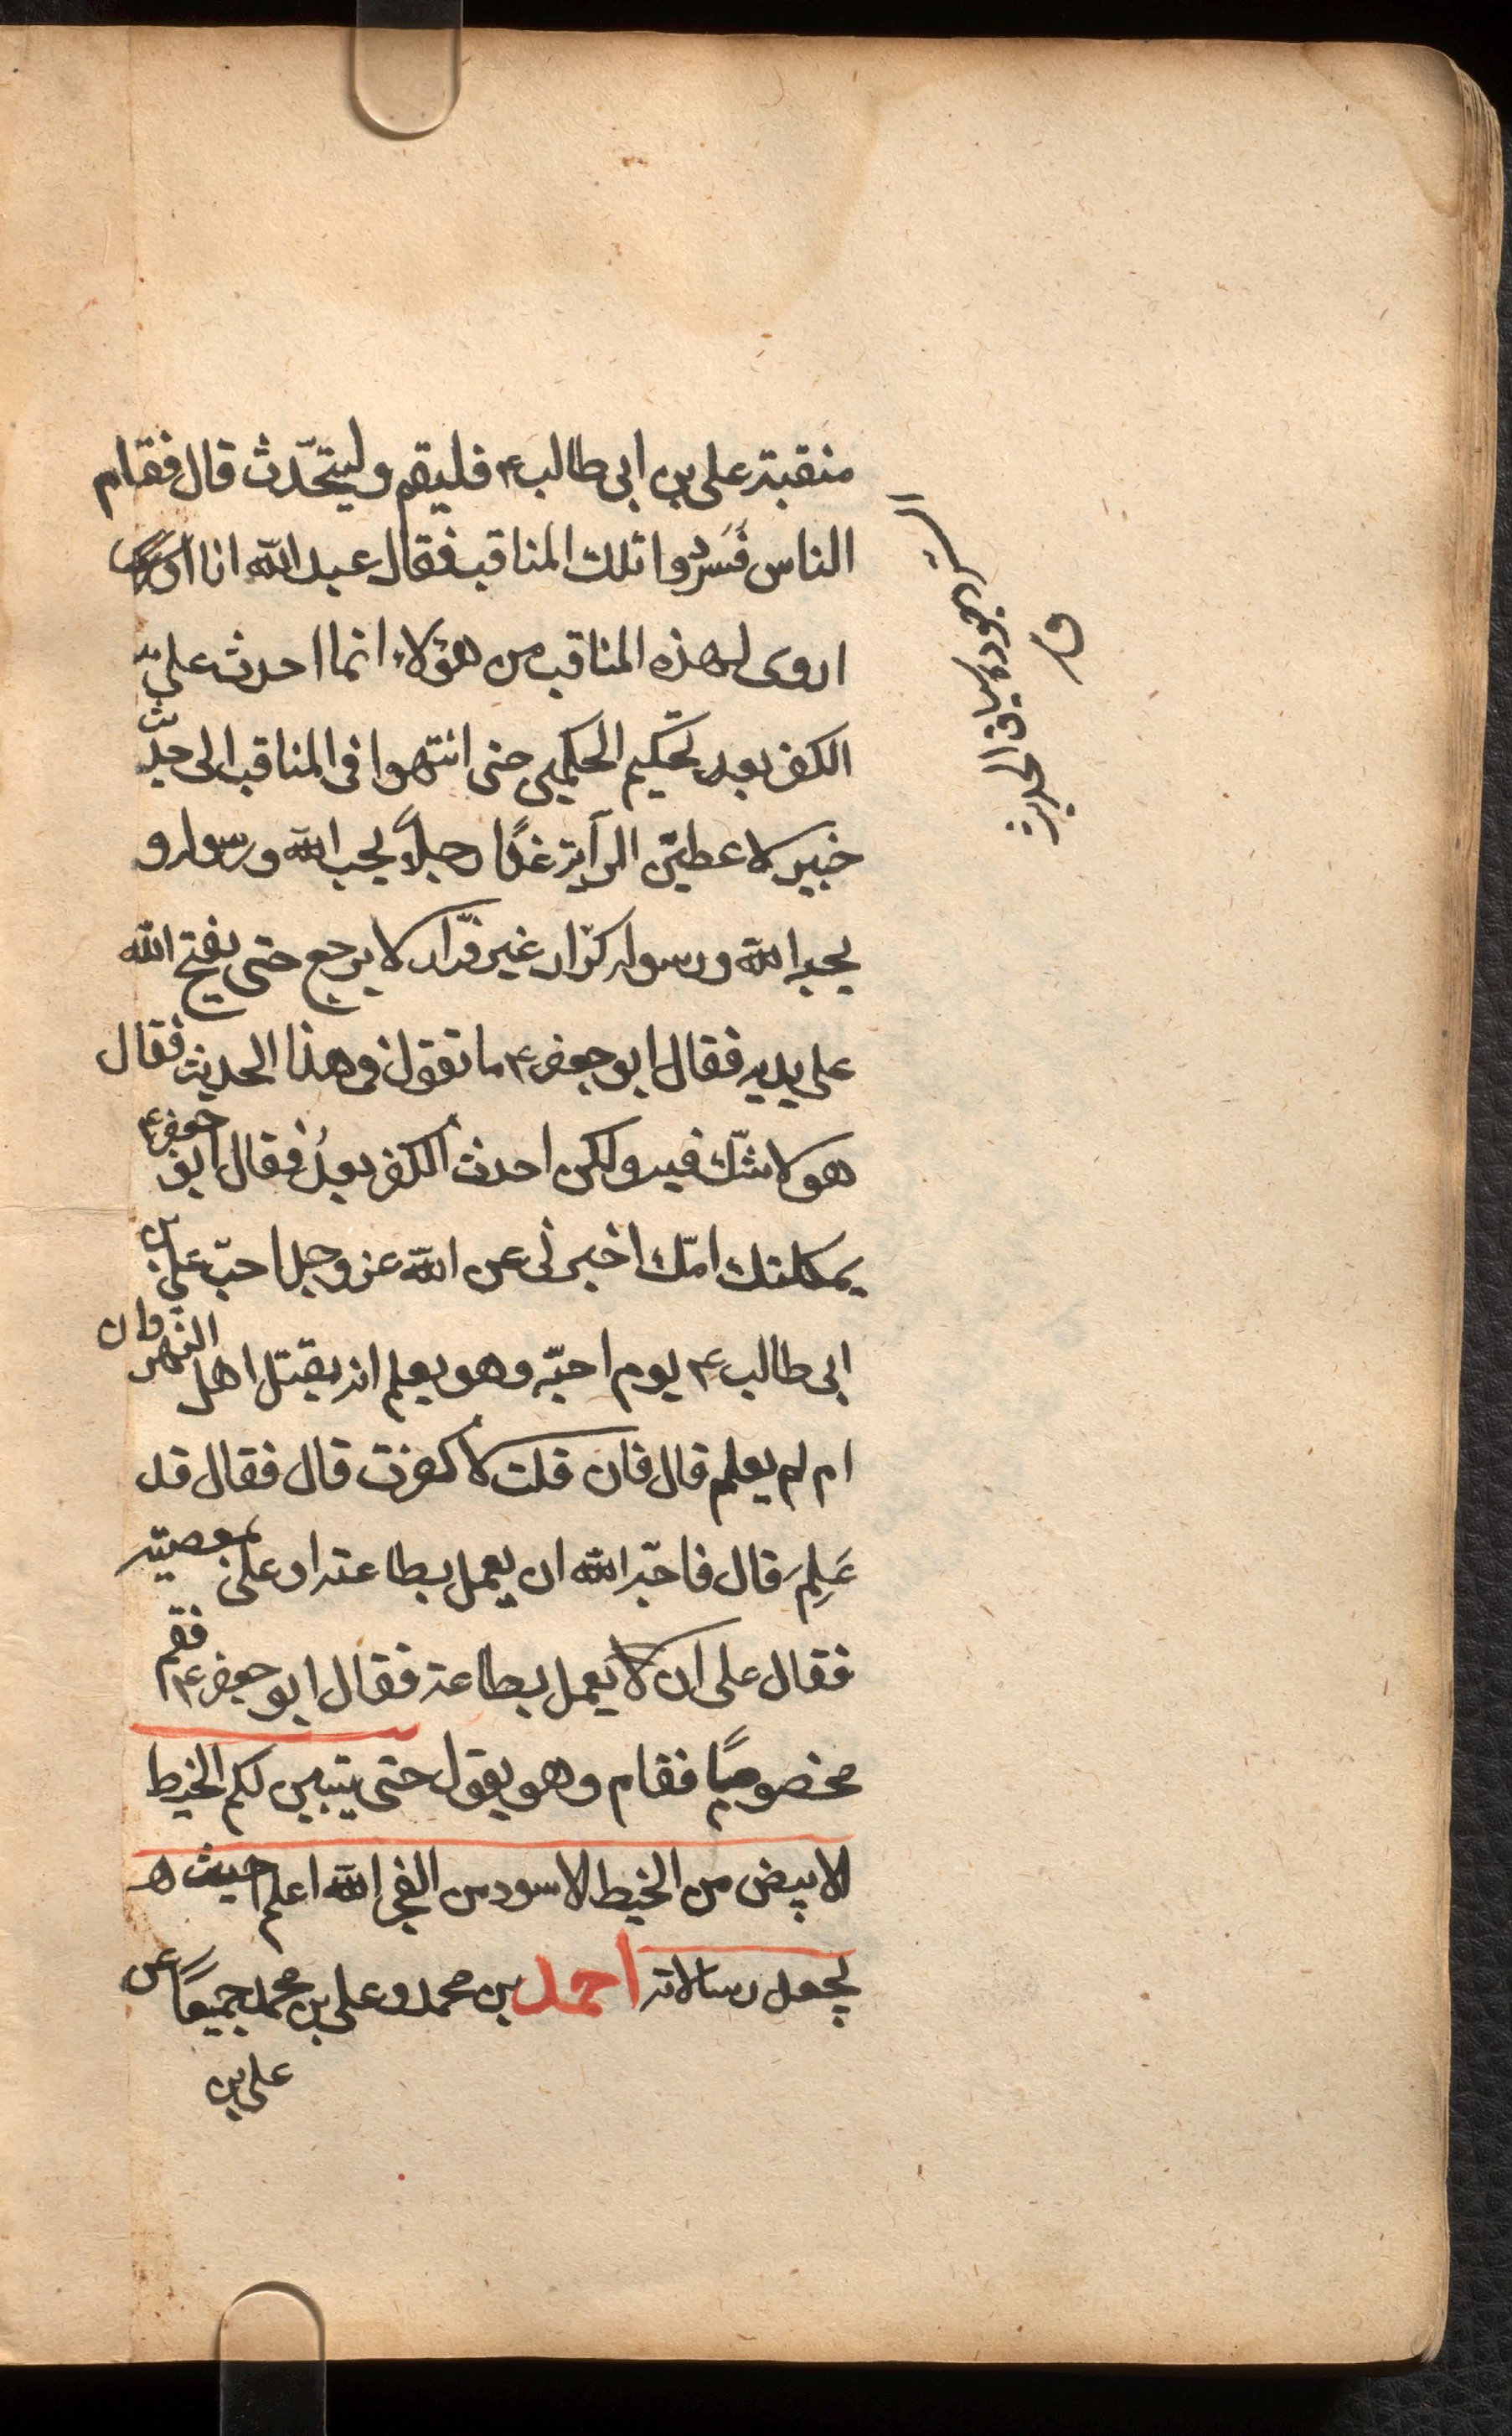 منقبة على بن ابى طالب ع فليقم وليتحدّث قال فقام
الناس فَسَردوا تلك المناقب فقال عبد الله انا
اروى لهذه المناقب من هؤلاء انما احدث علىّ
الكفر بعد تحكيم الحكمين حتى انتهوا فى المناقب الى حديث
خيبر لاعطيّن الرآية غدًا رجلًا يحب الله ورسوله و
يحبه الله ورسوله كرّار غير فرّار لا يرجع حتى يفتح الله
على يديه فقال ابو جعفر ع ما تقول فى هذا الحديث فقال
هو لا شكّ فيه ولكن احدث الكفر بعدُ فقال ابو جعفر ع
ثكلتك امّك اخبرنى عن الله عز وجل احبّ على بن
ابى طالب ع يوم احبّه وهو يعلم انه يقتل اهل النهروان
ام لم يعلم قال فان قلت لا كفرت قال فقال قد
عَلِمَ قال فاحبّه الله ان يعمل بطاعته او على معصيته
فقال على ان لا يعمل بطاعته فقال ابو جعفر ع فقم
مخصومًا فقام وهو يقول حتى يتبين لكم الخيط
الابيض من الخيط الاسود من الفجر الله اعلم حيث
يجعل رسالاته احمد بن محمد وعلى بن محمد جميعًا عن
على بن
السرد جودة سياق الحديث
ق